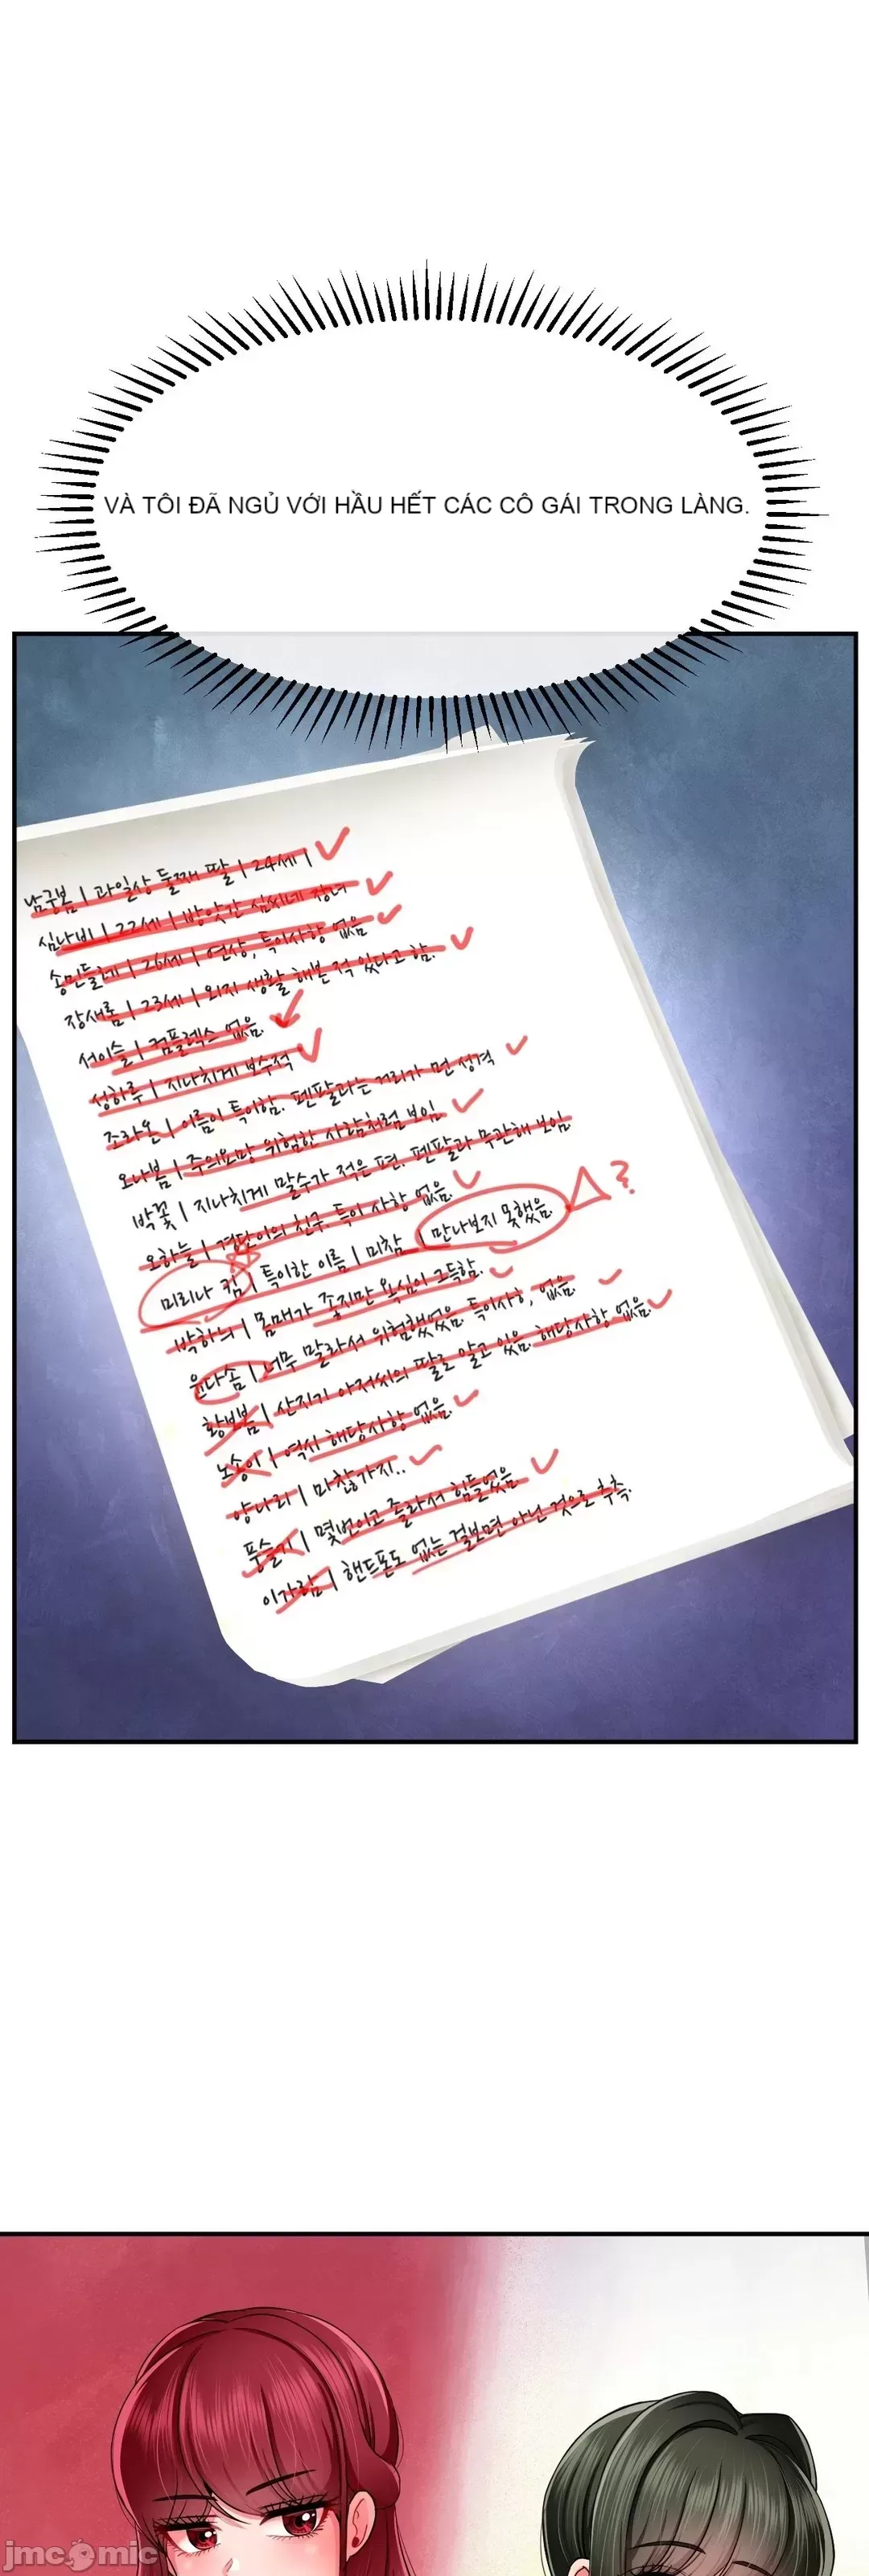 VÀ TÔI ĐÃ NGỦ VỚI HẦU HẾT CÁC CÔ GÁI TRONG LÀNG.
남궁봄 | 과일상 둘째 딸 | 24세 |
심나비 | 22세 | 방앗간 심씨네 장녀
송민들레 | 26세 | 연상, 특이사항 없음
장새롬 | 23세 | 외지 생활 해본 적 있다고 함.
서이슬 | 컴플렉스 없음.
성하루 | 지나치게 보수적
조라온 | 이름이 특이함. 펜팔과는 거리가 먼 성격
오나봄 | 주의요망 위험한 사람처럼 보임
박꽃 | 지나치게 말수가 적은 편. 펜팔과 무관해 보임
오하늘 | 경단이의 친구. 특이 사항 없음.
미리나 킴 | 특이한 이름 | 미참 | 만나보지 못했음. ?
박하늬 | 몸매가 좋지만 욕심이 그득함.
윤다솜 | 너무 말라서 위험했었음. 특이사항, 없음.
황보봄 | 산지기 아저씨의 딸로 알고 있음. 해당사항 없음.
노송이 | 역시 해당사항 없음.
양나리 | 마찬가지..
풍슬기 | 몇번이고 졸라서 힘들었음.
이가람 | 핸드폰도 없는 걸보면 아닌 것으로 추측.
jmcomic